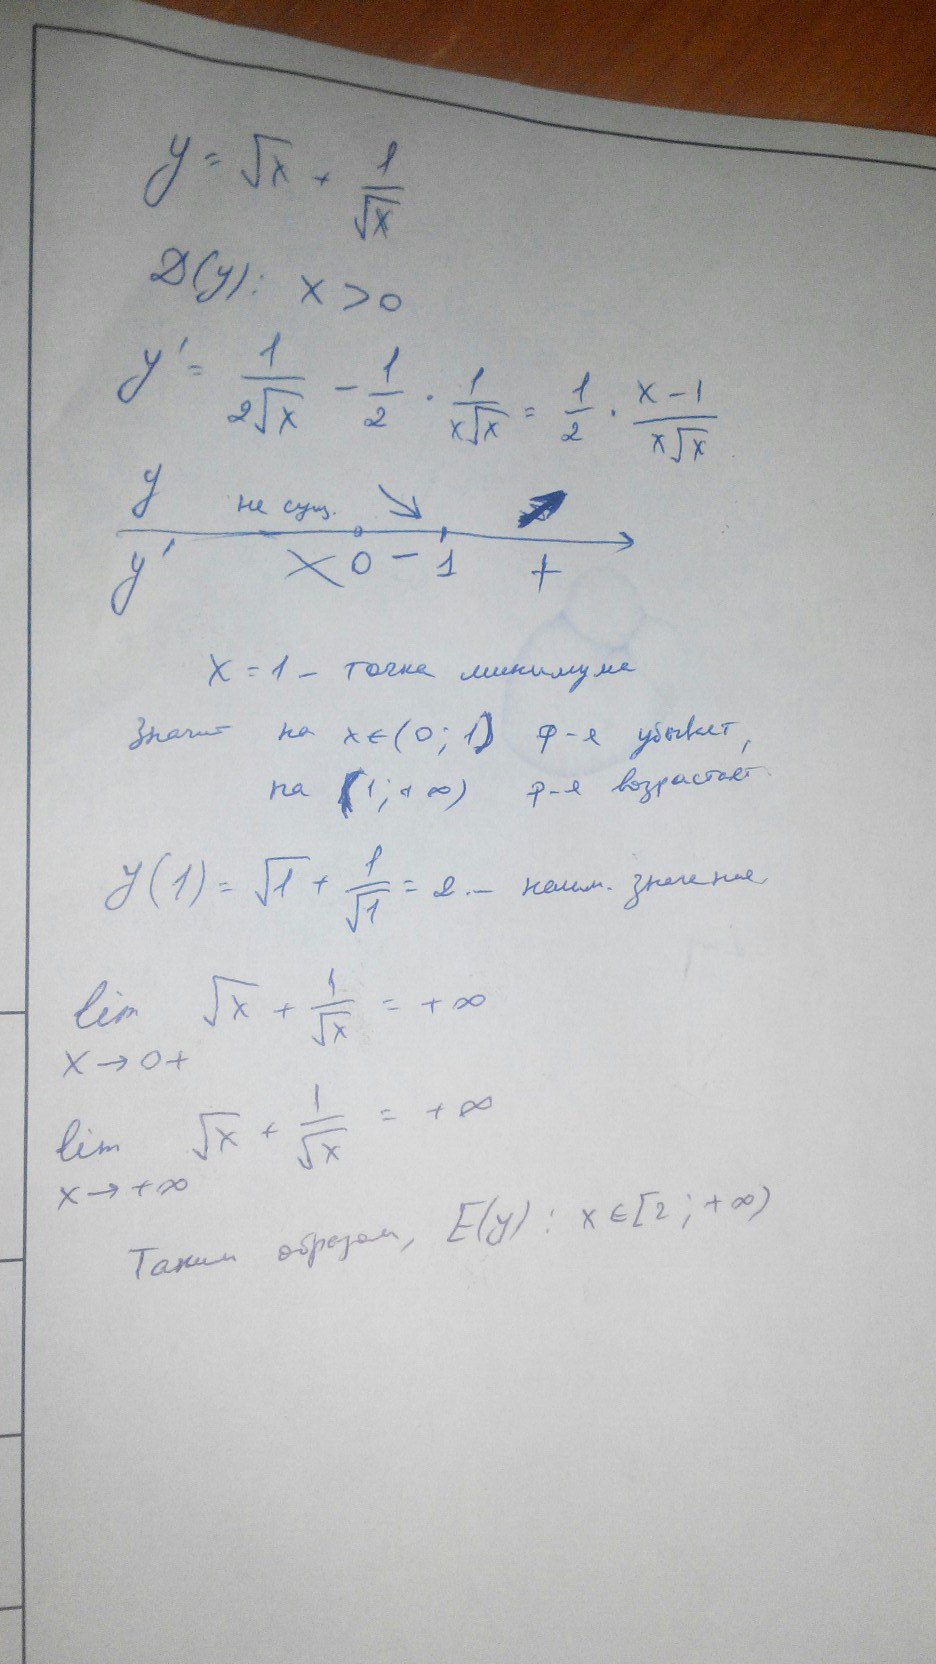 y = √x + 1/√x
D(y): x > 0
y' = 1/(2√x) − 1/2 · 1/(x√x) = 1/2 · (x−1)/(x√x)
y не сущ. ↘ ↗
y' × 0 − 1 +
x = 1 – точка минимума
Значит на x ∈ (0; 1) ф-я убывает,
на (1; +∞) ф-я возрастает
y(1) = √1 + 1/√1 = 2 – наим. значение
lim √x + 1/√x = +∞
x → 0+
lim √x + 1/√x = +∞
x → +∞
Таким образом, E(y): x ∈ [2; +∞)